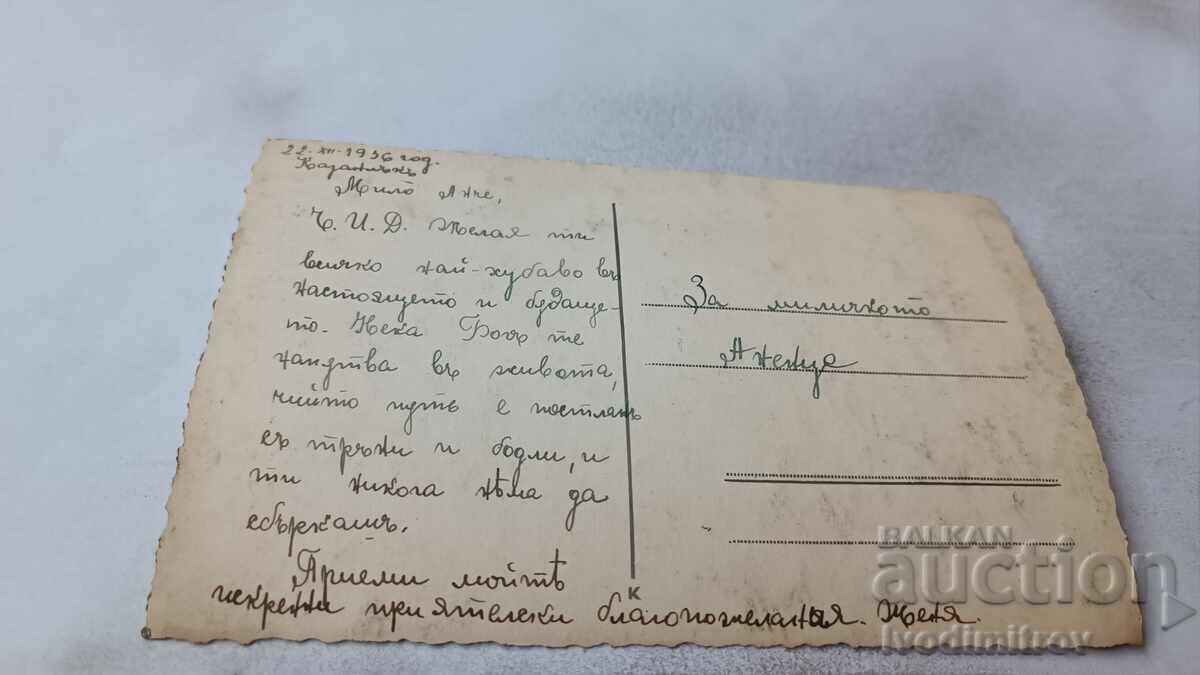 22. XII. 1936 год.
Казанлъкъ
Мило Анче,
Ч. И. Д. Желая ти
всичко най-хубаво въ
настоящето и бѫдаще-
то. Нека Богъ те
напѫтва въ живота,
чийто пѫть е постланъ
съ тръни и бодли, и
ти никога нѣма да
сбъркашъ.
Приеми моитѣ
искренни приятелски благопожелания. Женя.
За миличкото
Аненце
К
BALKAN
auction
Ivodimitrov